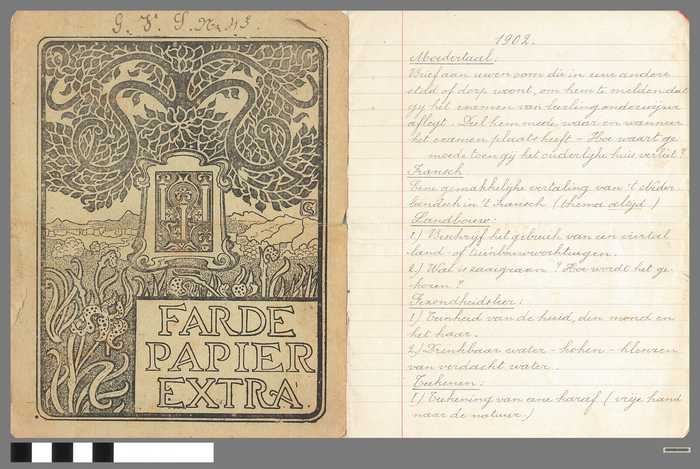 G. V. S. Nr. 43.
FARDE
PAPIER
EXTRA
1902.
Moedertaal:
Brief aan uwen oom die in eene andere
stad of dorp woont, om hem te melden dat
gij het examen van leerling onderwijzer
aflegt. Deel hem mede waar en wanneer
het examen plaats heeft – Hoe waart ge
moede toen gij het ouderlijke huis verliet?
Fransch
Eene gemakkelijke vertaling van 't Neder-
landsch in 't Fransch (thema altijd.)
Landbouw:
1.) Beschrijf het gebruik van een viertal
land- of tuinbouwwerktuigen.
2.) Wat is zaaigraan? Hoe wordt het ge-
koren?
Gezondheidsleer:
1.) Reinheid van de huid, den mond en
het haar.
2.) Drinkbaar water – koken – klenzen
van verdacht water.
Teekenen:
1.) Teekening van eene karaf (vrije hand
naar de natuur.)